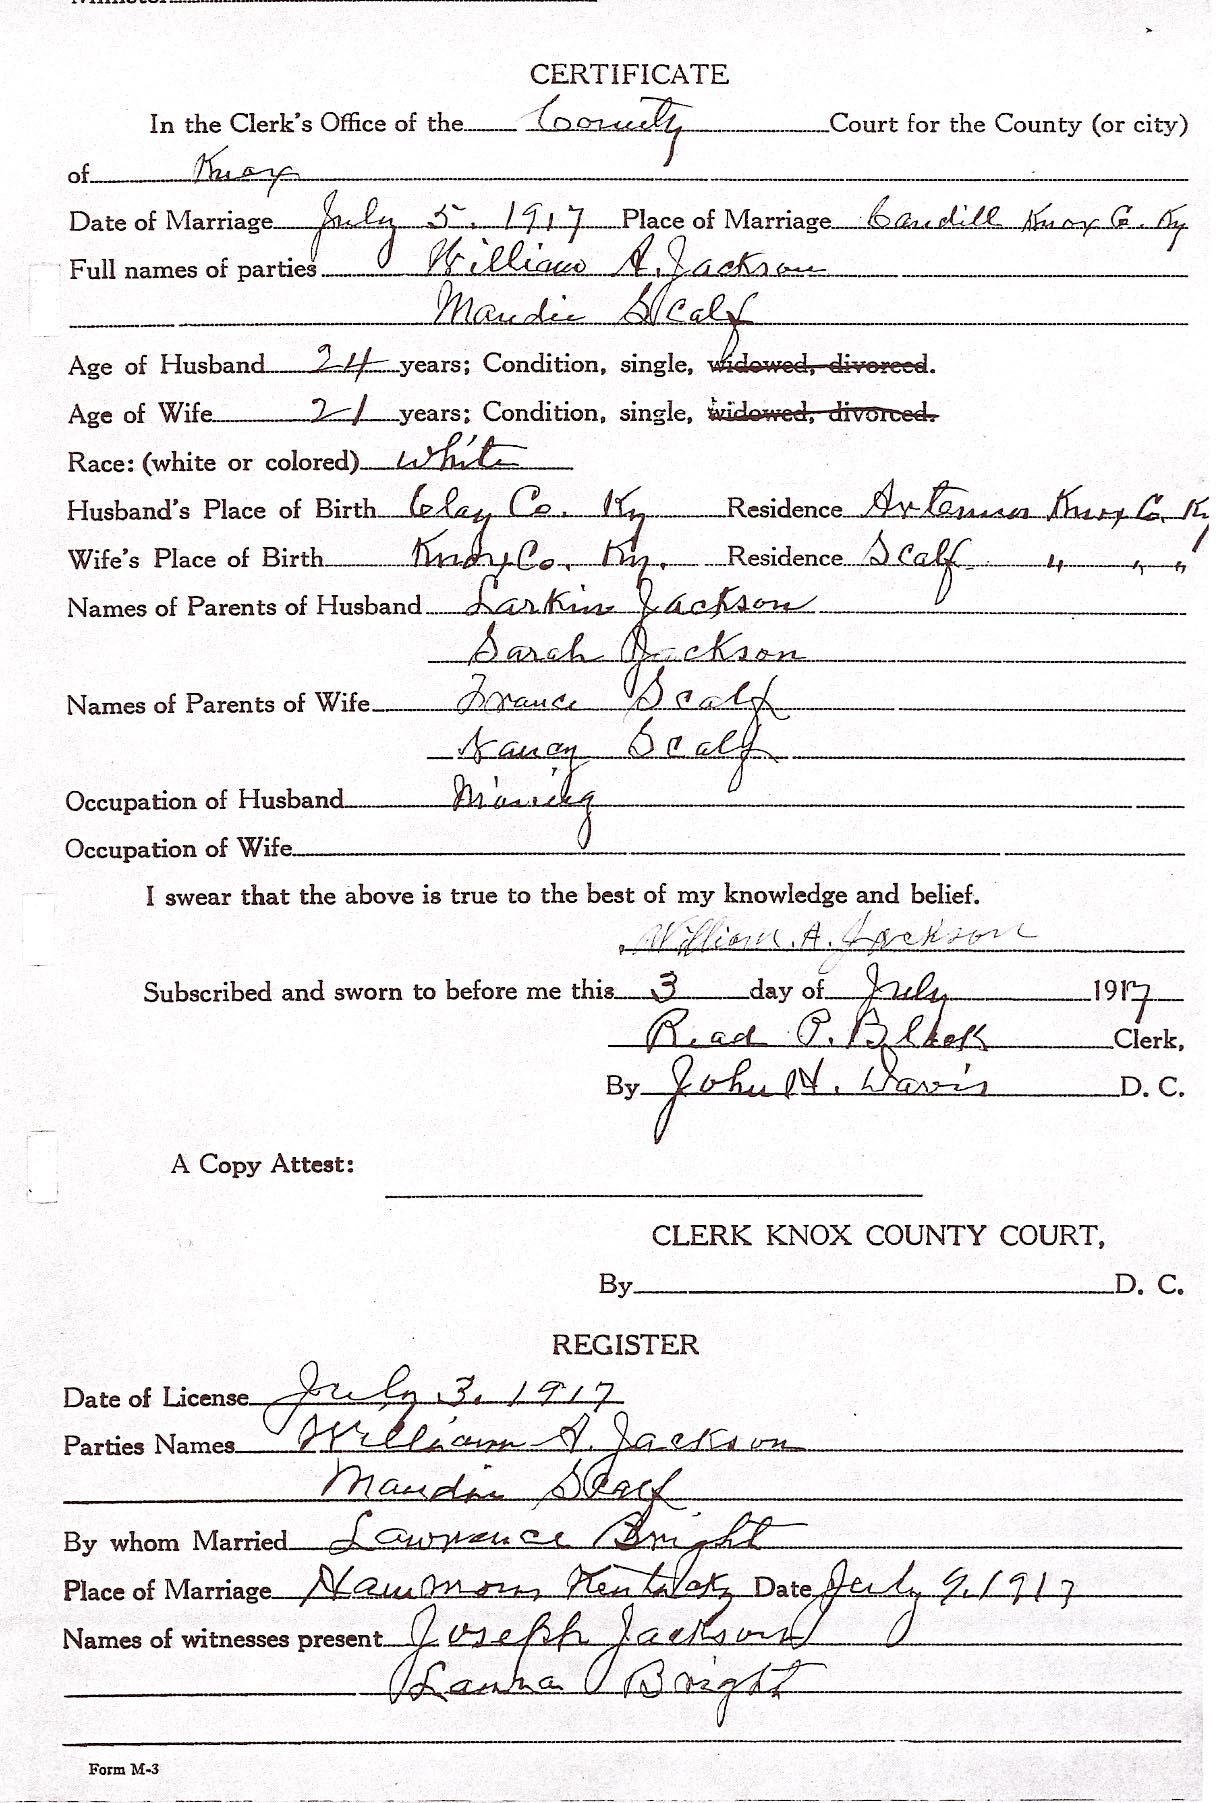 CERTIFICATE
In the Clerk's Office of the County Court for the County (or city)
of Knox
Date of Marriage July 5, 1917 Place of Marriage Caudill Knox Co. Ky
Full names of parties William A. Jackson
Maudie Scalf
Age of Husband 24 years; Condition, single, widowed, divorced.
Age of Wife 21 years; Condition, single, widowed, divorced.
Race: (white or colored) White
Husband's Place of Birth Clay Co. Ky Residence Artemus Knox Co. Ky
Wife's Place of Birth Knox Co. Ky. Residence Scalf " " "
Names of Parents of Husband Larkin Jackson
Sarah Jackson
Names of Parents of Wife France Scalf
Nancy Scalf
Occupation of Husband Mining
Occupation of Wife
I swear that the above is true to the best of my knowledge and belief.
William. A. Jackson
Subscribed and sworn to before me this 3 day of July 1917
Read P. Black Clerk,
By John H. Davis D. C.
A Copy Attest:
CLERK KNOX COUNTY COURT,
By D. C.
REGISTER
Date of License July 3, 1917
Parties Names William A. Jackson
Maudie Scalf
By whom Married Lawrence Bright
Place of Marriage Hammons, Kentucky Date July 9, 1917
Names of witnesses present Joseph Jackson
Bright
Form M-3